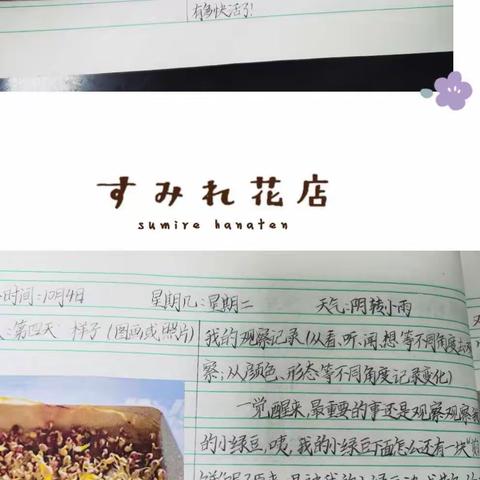 有多快活了!
すみれ花店
sumire hanaten
时间:10月4日 星期几:星期二 天气:阴转小雨
第四天 样子(图画或照片) 我的观察记录(从看、听、闻、想等不同角度去观
察,从颜色、形态等不同角度记录变化)
一觉醒来,最重要的事还是观察观察
的小绿豆,咦,我的小绿豆下面怎么还有一块